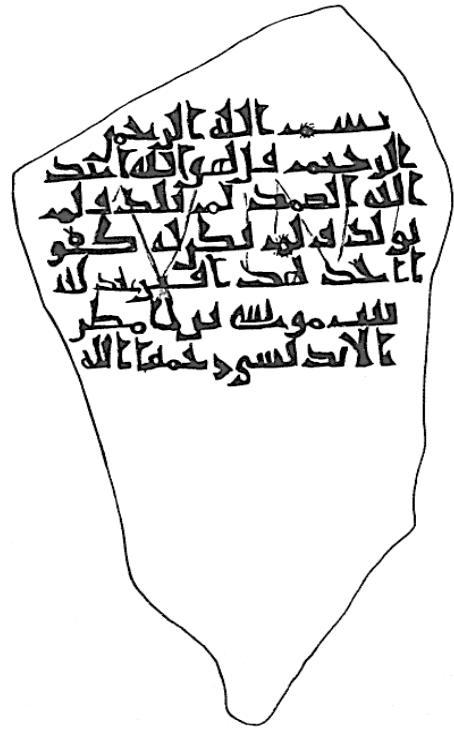 بسم الله الرحمن
الرحيم قل هو الله احد
الله الصمد لم يلد ولم
يولد ولم يكن له كفو
ا احد هذا قبر
موسى بن مطر
الاندلسي رحمة الله